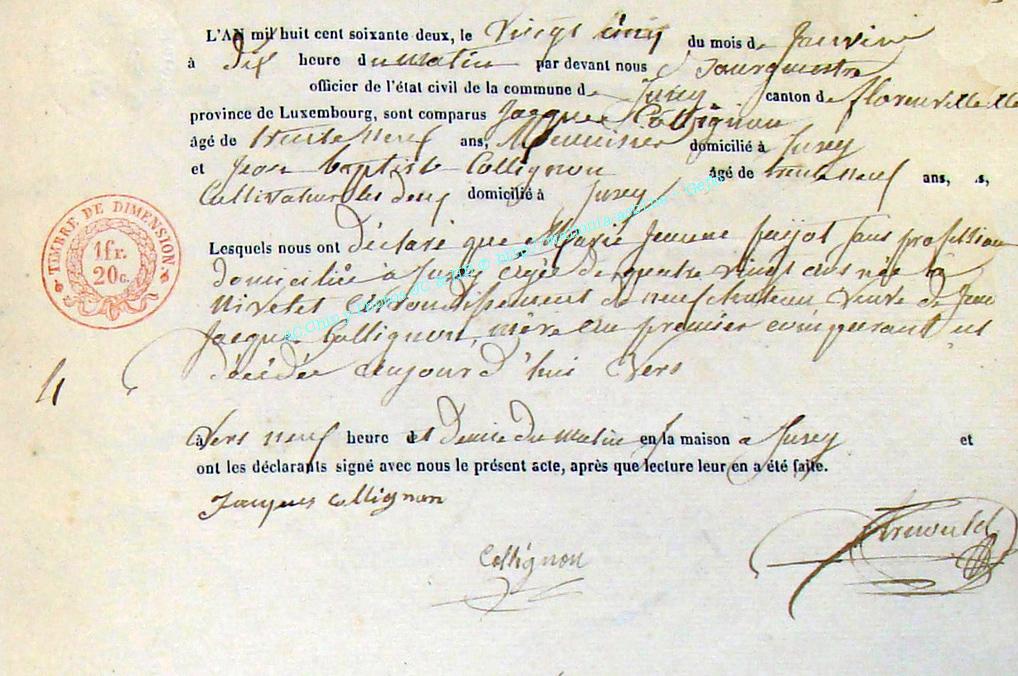 L'AN mil huit cent soixante deux, le Vingt Cinq du mois de Janvier
à Dix heure du Matin par devant nous
officier de l'état civil de la commune de canton de florenville
province de Luxembourg, sont comparus Jacques Collignon
âgé de trente neuf ans, domicilié à
et Jean Baptiste Collignon âgé de trente neuf ans,
Cultivateur les deux domicilié à
Lesquels nous ont déclaré que Marie Jeanne sans profession
domiciliée à agée de quatre vingt ans née à
arrondissement de neufchateau Veuve de Jean
Jacques Collignon, mère au premier comparant est
décédée aujourd'hui Vers
Vers neuf heure et demie du Matin en la maison à et
ont les déclarants signé avec nous le présent acte, après que lecture leur en a été faite.
Jacques Collignon
Collignon
TIMBRE DE DIMENSION
1fr.
20c.